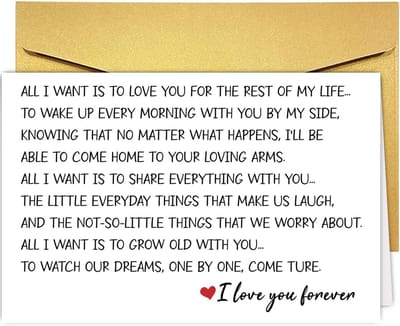 ALL I WANT IS TO LOVE YOU FOR THE REST OF MY LIFE...
TO WAKE UP EVERY MORNING WITH YOU BY MY SIDE,
KNOWING THAT NO MATTER WHAT HAPPENS, I'LL BE
ABLE TO COME HOME TO YOUR LOVING ARMS.
ALL I WANT IS TO SHARE EVERYTHING WITH YOU...
THE LITTLE EVERYDAY THINGS THAT MAKE US LAUGH,
AND THE NOT-SO-LITTLE THINGS THAT WE WORRY ABOUT.
ALL I WANT IS TO GROW OLD WITH YOU...
TO WATCH OUR DREAMS, ONE BY ONE, COME TURE.
I love you forever